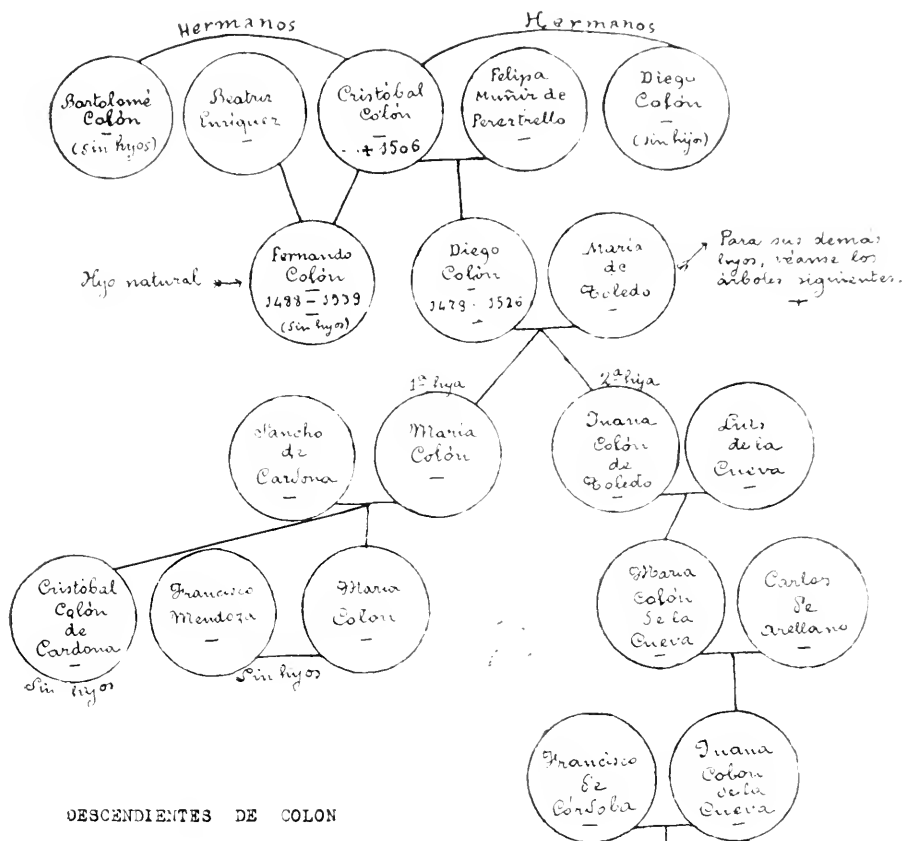 Hermanos
Hermanos
Bartolomé
Colón
(sin hijos)
Beatriz
Enríquez
Cristóbal
Colón
+ 1506
Felipa
Muñiz de
Perestrello
Diego
Colón
(sin hijos)
Hijo natural
Fernando
Colón
1488 - 1539
(sin hijos)
Diego
Colón
1479 - 1526
María
de
Toledo
Para sus demás
hijos, véanse los
árboles siguientes.
1ª hija
2ª hija
Sancho
de
Cardona
María
Colón
Juana
Colón
de
Toledo
Luis
de la
Cueva
Cristóbal
Colón
de
Cardona
Sin hijos
Francisco
Mendoza
María
Colón
Sin hijos
María
Colón
de la
Cueva
Carlos
de
Arellano
Francisco
de
Córdoba
Juana
Colon
de la
Cueva
DESCENDIENTES DE COLON